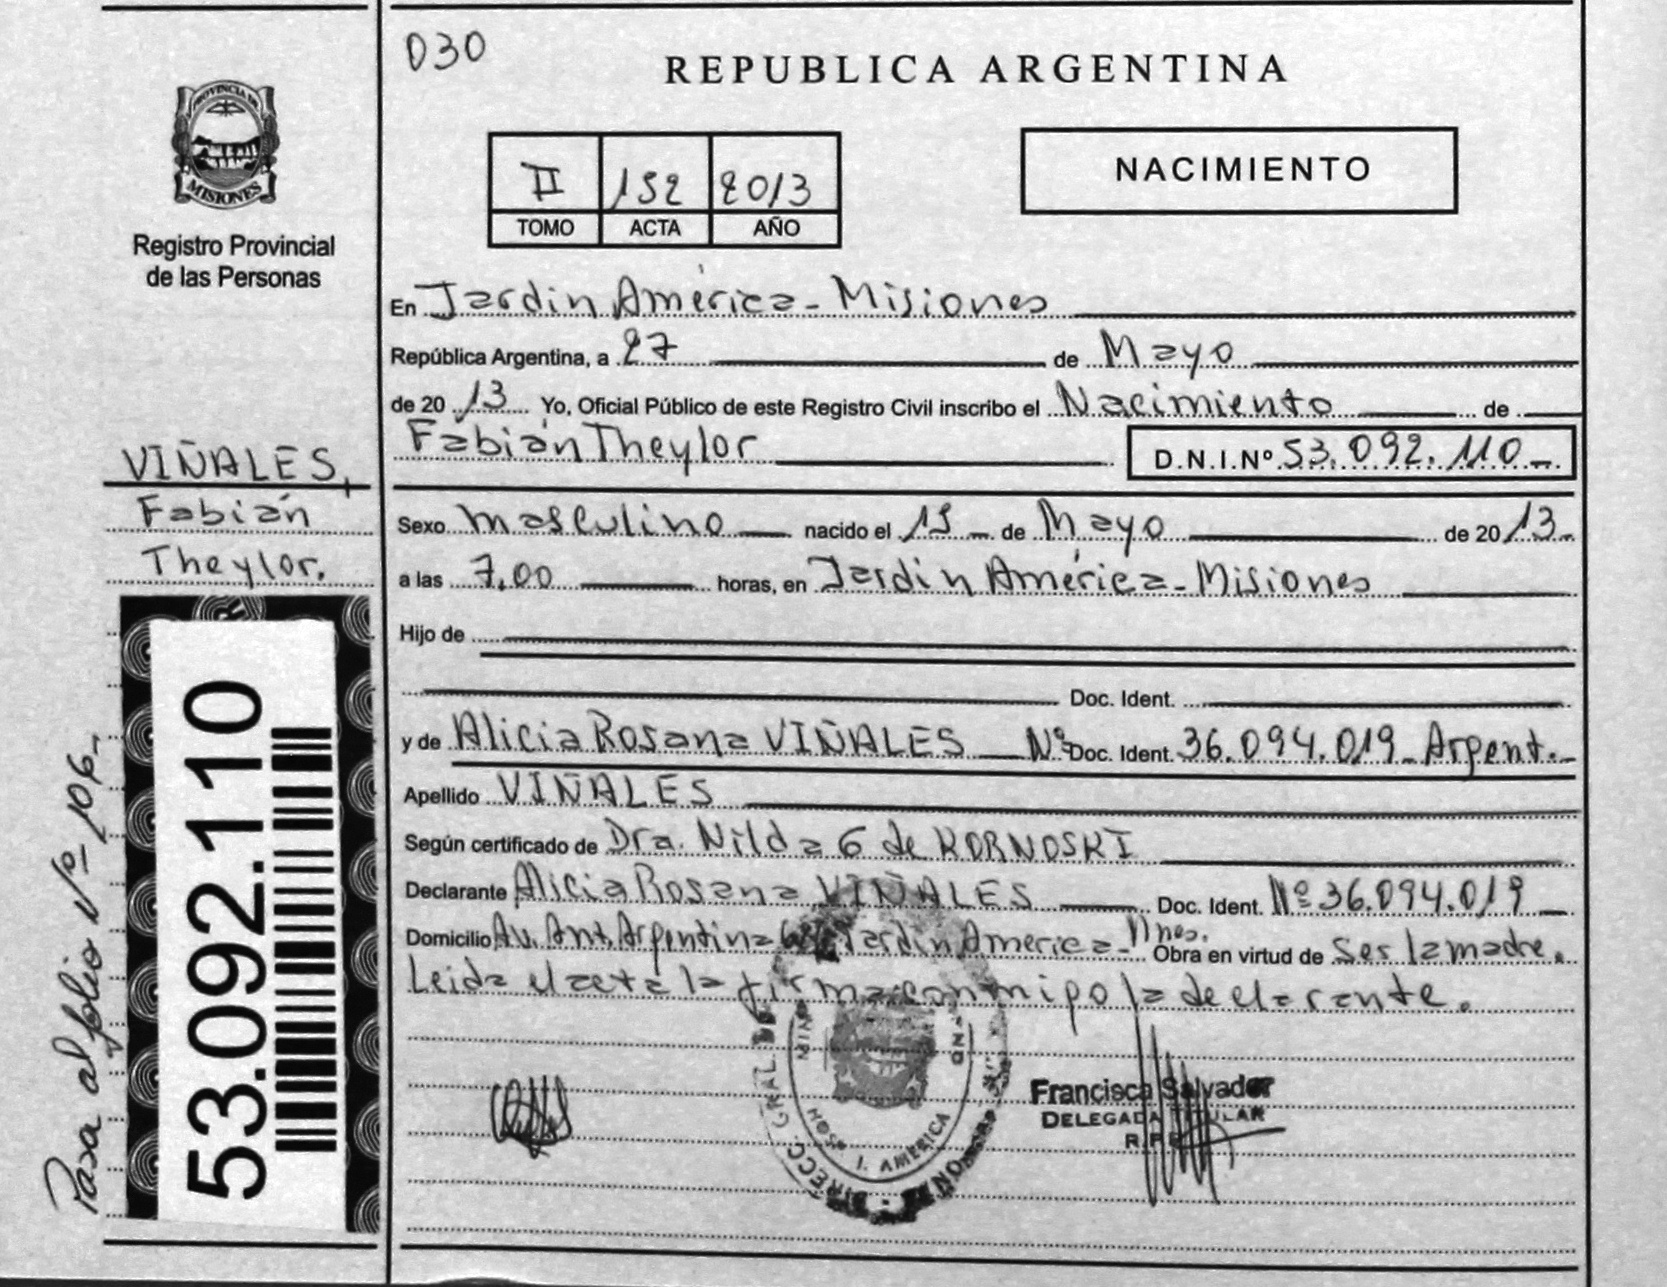 030
REPUBLICA ARGENTINA
PROVINCIA DE
MISIONES
Registro Provincial
de las Personas
II 152 2013
TOMO ACTA AÑO
NACIMIENTO
En Jardín América - Misiones
República Argentina, a 27 de Mayo
de 20 13 Yo, Oficial Público de este Registro Civil inscribo el Nacimiento de
Fabián Theylor D.N.I.Nº 53.092.110
VIÑALES,
Fabián
Theylor.
Sexo masculino nacido el 15 de Mayo de 20 13
a las 7,00 horas, en Jardín América - Misiones
Hijo de
Doc. Ident.
y de Alicia Rosana VIÑALES Nº Doc. Ident. 36.094.019 - Argent.
Apellido VIÑALES
Según certificado de Dra. Nilda G de KORNOSKI
Declarante Alicia Rosana VIÑALES Doc. Ident. Nº 36.094.019
Domicilio Av. Ant. Argentina Jardín America - Mnes. Obra en virtud de Ser la madre.
Leida el acta la firma conmigo la declarante.
53.092.110
Pasa al folio Nº 106
Francisca Salvador
DELEGADA TITULAR
DIRECC. GRAL. DE
J. AMERICA